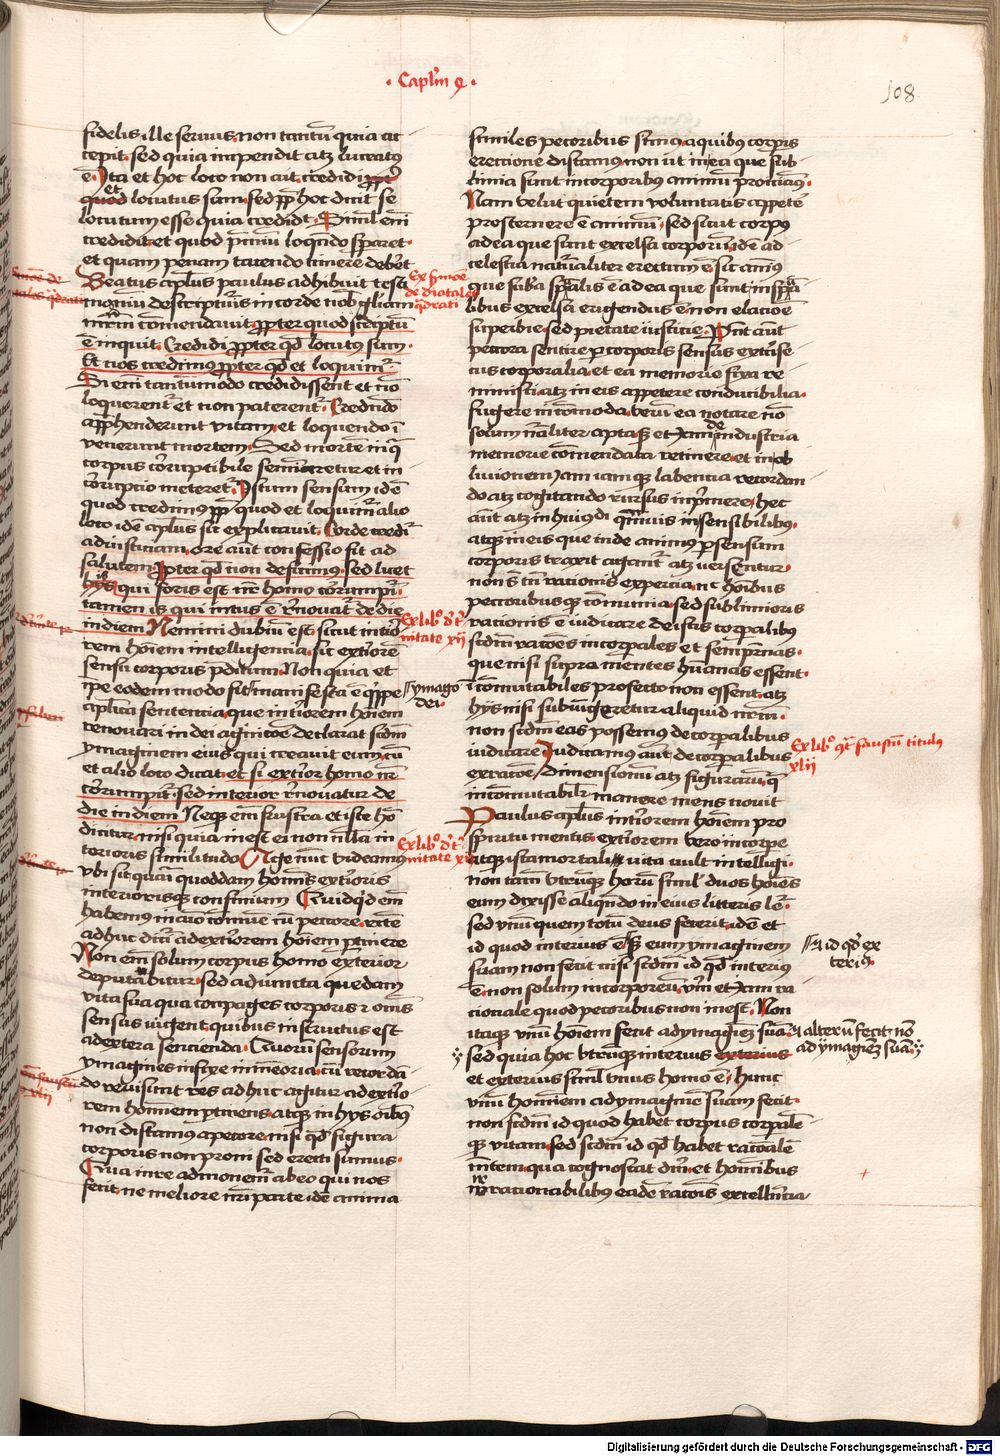 · Capl'm 4 ·
108
fidelis ille seruus non tantū quia ac
cepit sed quia inpendit atz lucratus
ē Ita et hoc loco non ait credidi
et locutus sum sed ppt hoc dixit se
locutum esse quia credidit Simul em̄
credidit et quod p̄miū loquendo speraret
et quam penam tacendo timere deberet
Beatus apl's paulus adhibuit testi
moniū descripturis in corde nob
nr̄m comendauit ppter quod scriptū
ē inquit Credidi ppter qd locutus sum
Et nos credimus ppter qd et loquimur
Si em̄ tantūmodo credidissent et nō
loquerent' et non paterent' Credendo
apphenderunt vitam et loquendo ī
venerunt mortem Sed mortē in q
corpus corruptibile seminaretur et in
corruptio meteret' Istum sensum idē
quod credimus ppt quod et loquimur alio
loco idē apl's sic explicauit Corde credit'
ad iusticiam ore aūt confessio fit ad
salutem Ppter qd non deficimus sed licet
is qui foris est nr̄ homo corrumpit'
tamen is qui intus ē renouat' de die
in diem Nemini dubiū est sicut interio
rem hoīem intelligencia sic exteriorē
sensu corporis preditum Non quia et
ipe eodem modo sit nam manifesta ē quippe
aplica sentencia que interiorem hoīem
renouari in dei agnitōe declarat scdm
ymaginem eius qui creauit eum cū
et alio loco dicat et si exterior homo nr̄
corrumpit' sed interior renouatur de
die in diem Neqz em̄ frustra et iste hō
dicitur nisi quia inest ei nonnulla in
terioris similitudo Age nunc videamus
vbi sit quasi quoddam hominis exterioris
interiorisqz confinium Quidquid em̄
habemus in aīo comune cū peccore recte
adhuc dicit' ad exteriorem hoīem ptinere
Non em̄ solum corpus homo exterior
deputabitur sed adiuncta quedam
vita sua qua conpages corporis et omnes
sensus vigent quibus instructus est
ad extera sencienda Quorum sensorum
ymagines infixe in memoria cū recorda
do reuisunt res adhuc agitur ad exterio
rem hominem ptinens atqz in hys oībus
non distamus a pecore nisi qd figura
corporis non proni sed erecti sumus
Qua in re admonemur ab eo qui nos
fecit ne meliore nr̄i parte idē anima
Ex sermōe
de diatales
qdrati
Ex libº de t'
nitate xii
ymago
dei
Ex libº de t'
nitate xii
similes pecoribus simus a quibus corporis
erectione distamus non ut in ea que sub
limia sunt in corporibus animum proiciamus
Nam velut quietem voluntatis appetere
prosternere ē animum sed sicut corpus
ad ea que sunt excelsa corporum idē ad
celestia naturaliter erectum ē sic animus
que suba spiritalis ē ad ea que sunt in spirita
libus excelsa erigendus ē non elatione
superbie sed pietate iusticie Possunt aut
peccora sentire p corporis sensus extrinse
cus corporalia et ea memorie fixa re
minisci atz in eis appetere conducibilia
fugere incomoda verū ea notare nō
solum naturaliter capta sed et iam de industria
memorie comendata retinere et in ob
liuionem iam iamqz labencia recordan
do atz cogitando rursus inprimere hec
aut atz in huiusmodi quamuis in sensibilibus
atqz in eis que inde animus p sensum
corporis traxit agatur atz versentur
non sunt tn rationis expercia nec hoībus
peccoribusqz comunia sed sublimioris
rationis ē iudicare de istis corporalibus
scdm racōnes incorporales et sempiternas
que nisi supra mentes humanas essent
incomutabiles profecto non essent atz
hys nisi subiungeretur aliquid nr̄m
non scdm eas possemus de corporalibus
iudicare Iudicamus aut de corporalibus
ex racone dimensionum atz figurarum quam
incomutabiliter manere mens nouit
Paulus apl's interiorem hoīem pro
spiritu mentis exteriorem vero in corpe
atqz ista mortali vita vult intelligi
non tam vtrumqz horum simul duos hoīes
eum dixisse aliquando in eius litteris le'
sed vnum quem totum deus fecerit idē et
id quod interius ē sed eum ymaginem
suam non fecit nisi scdm id qd interius
ē non solum incorporeū verum et iam ra
cionale quod pecoribus non inest Non
itaqz vnū hoīem fecit ad ymaginem suā
sed quia hoc vtrumqz interius
et exterius simul vnus homo ē hunc
vnū hominem ad ymaginē suam fecit
non scdm id quod habet corpus corporalē
qz vitam sed scdm id qd habet racōnalē
mentem qua cognoscat deum et hominibus
irrationabilibus eadē racōnis excellencia
Ex libº 9tra faustū titulo
xlii
et id qd ex
terius
et alterū fecit nō
ad ymaginem suam
Digitalisierung gefördert durch die Deutsche Forschungsgemeinschaft - DFG